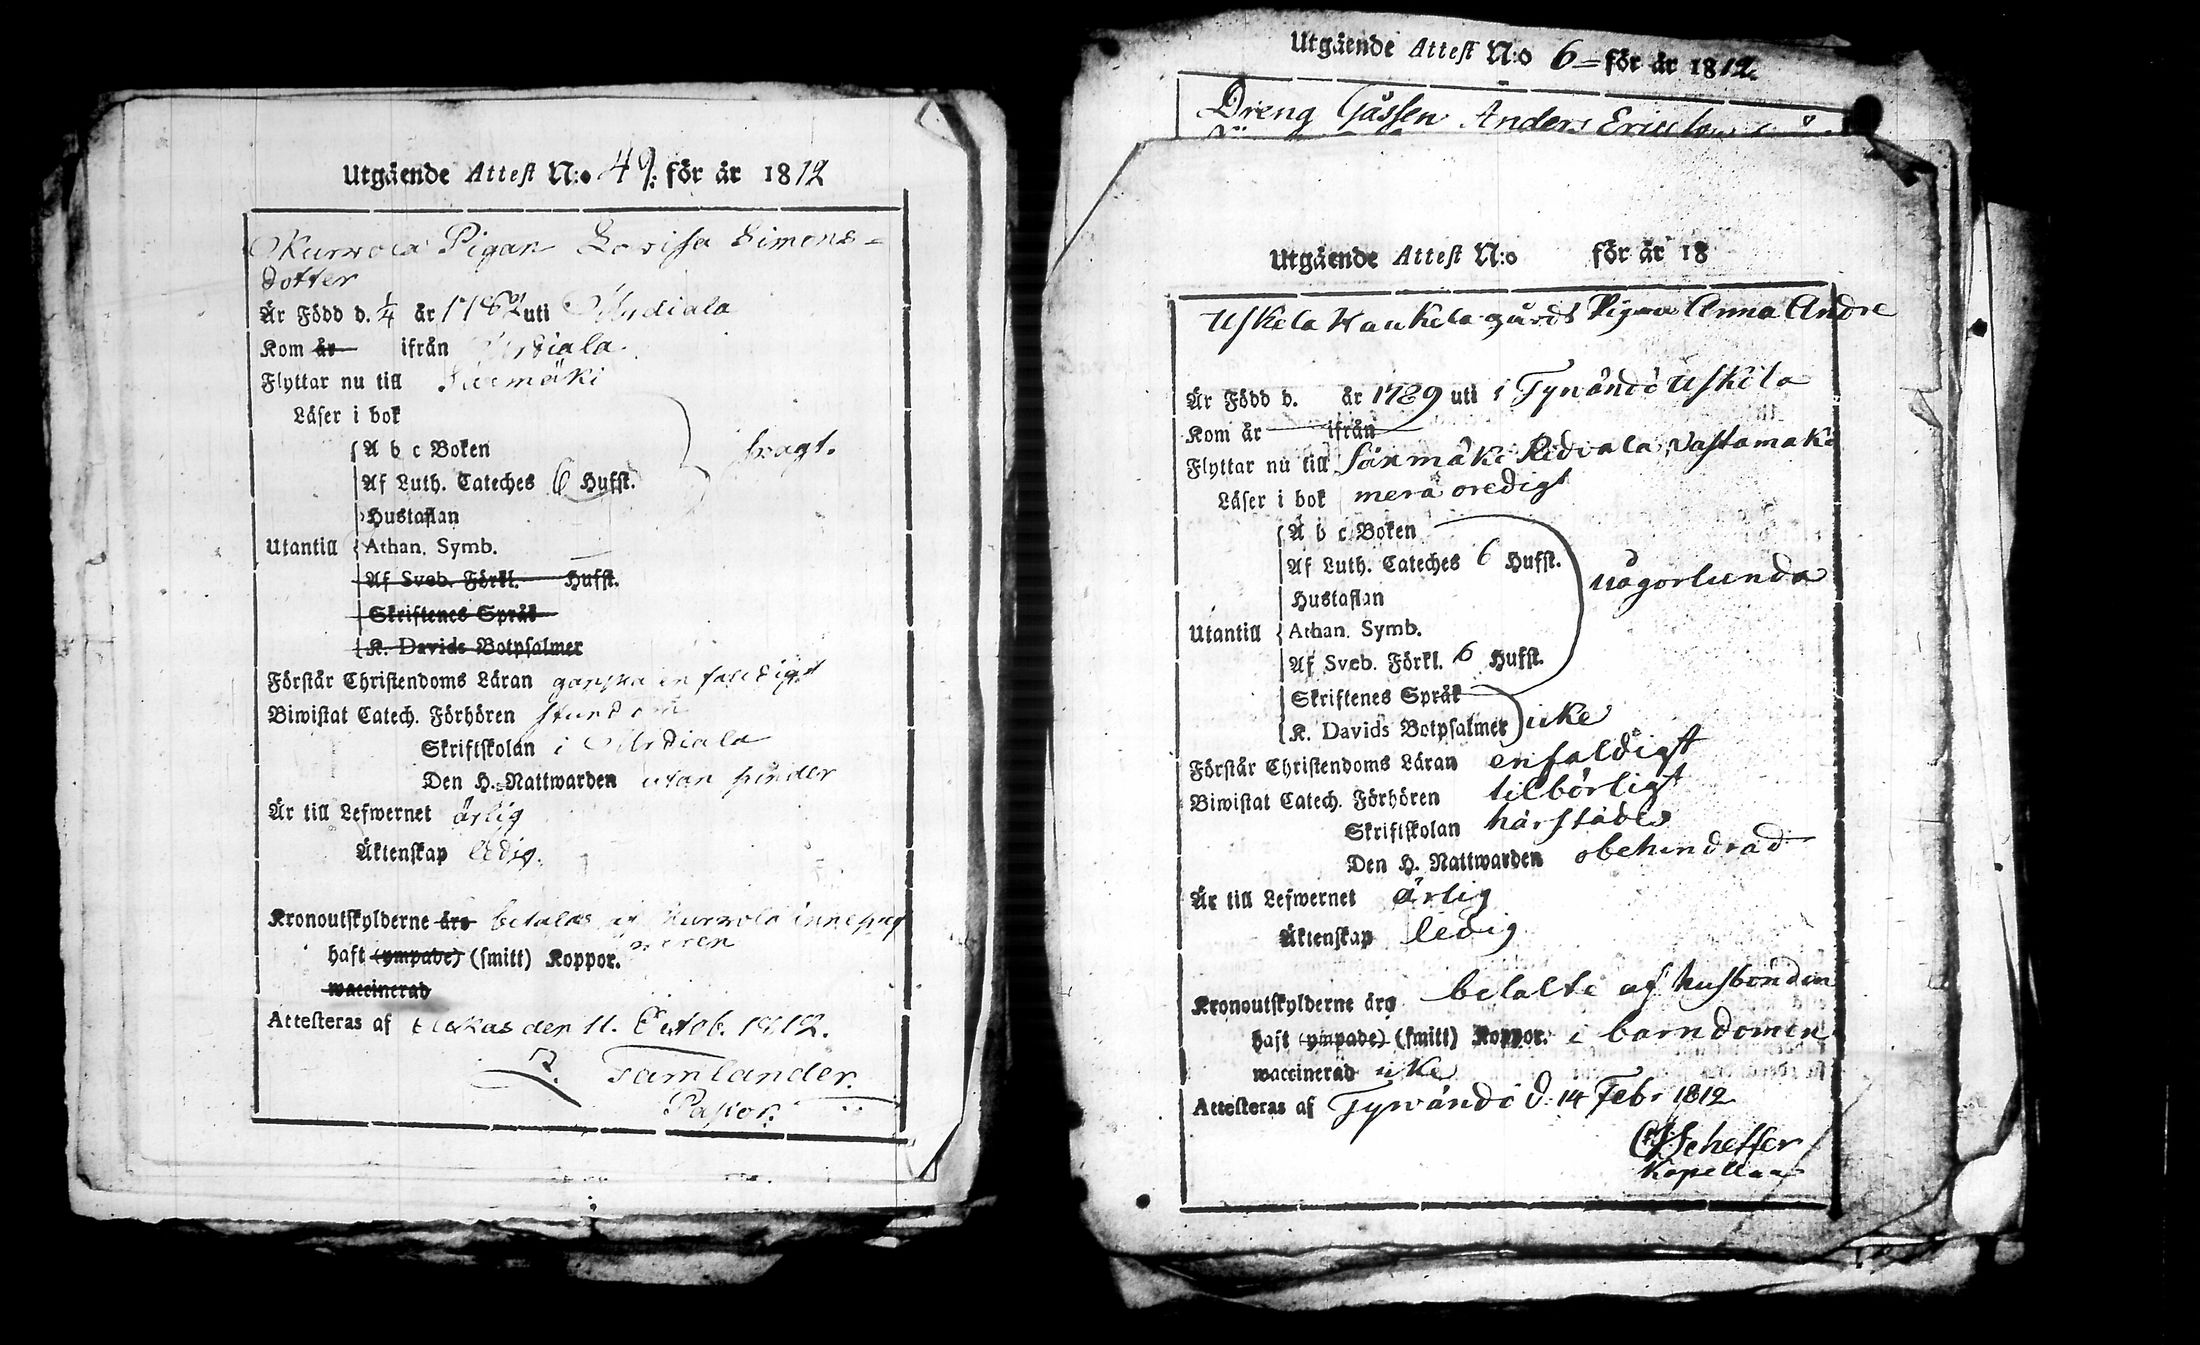 Utgående Attest N:o 49. för år 1812
Kurwola Pigan Lovisa Simons=
dotter
Är Född d. 1/4 år 1782 uti Urdiala
Kom år ifrån Urdiala
Flyttar nu till Säxmäki
Läser i bok
A b c Boken
svagt.
Af Luth. Cateches 6 Hufst.
Hustaflan
Utantill Athan. Symb.
Af Sveb. Förkl. Hufst.
Skriftenes Språk
K. Davids Botpsalmer
Förstår Christendoms Läran ganska enfaldigt
Biwistat Catech. Förhören stundom
Skriftskolan i Urdiala
Den H. Nattwarden utan hinder
Är till Lefwernet ärlig
Äktenskap ledig.
Kronoutskylderne äro betalas af Kurwola innehaf
waren
haft (ympade) (smitt) Koppor.
waccinerad
Attesteras af den 11. Octob. 1812.
Tamlander.
Pastor.
Utgående Attest N:o 6 för år 1812.
Dreng Gåssen Anders Ericsson
Utgående Attest N:o för år 18
Uskela Haukela gårds Pigan Anna Andre
Är Född d. år 1789 uti i Tyrvändö Uskila
Kom år ifrån
Flyttar nu till Säxmäki Ridvala Vastamäki
Läser i bok mera oredigt
A b c Boken
Af Luth. Cateches 6 Hufst.
någorlunda
Hustaflan
Utantill Athan. Symb.
Af Sveb. Förkl. 6 Hufst.
Skriftenes Språk
K. Davids Botpsalmer icke
Förstår Christendoms Läran enfaldigt
Biwistat Catech. Förhören tilbörligt
Skriftskolan härstädes
Den H. Nattwarden obehindrad
Är till Lefwernet ärlig
Äktenskap ledig
Kronoutskylderne äro betalte af husbonden
haft (ympade) (smitt) Koppor. i barndomen
waccinerad icke
Attesteras af Tyrvändö d. 14 Febr 1812
Scheffer
Kapellan